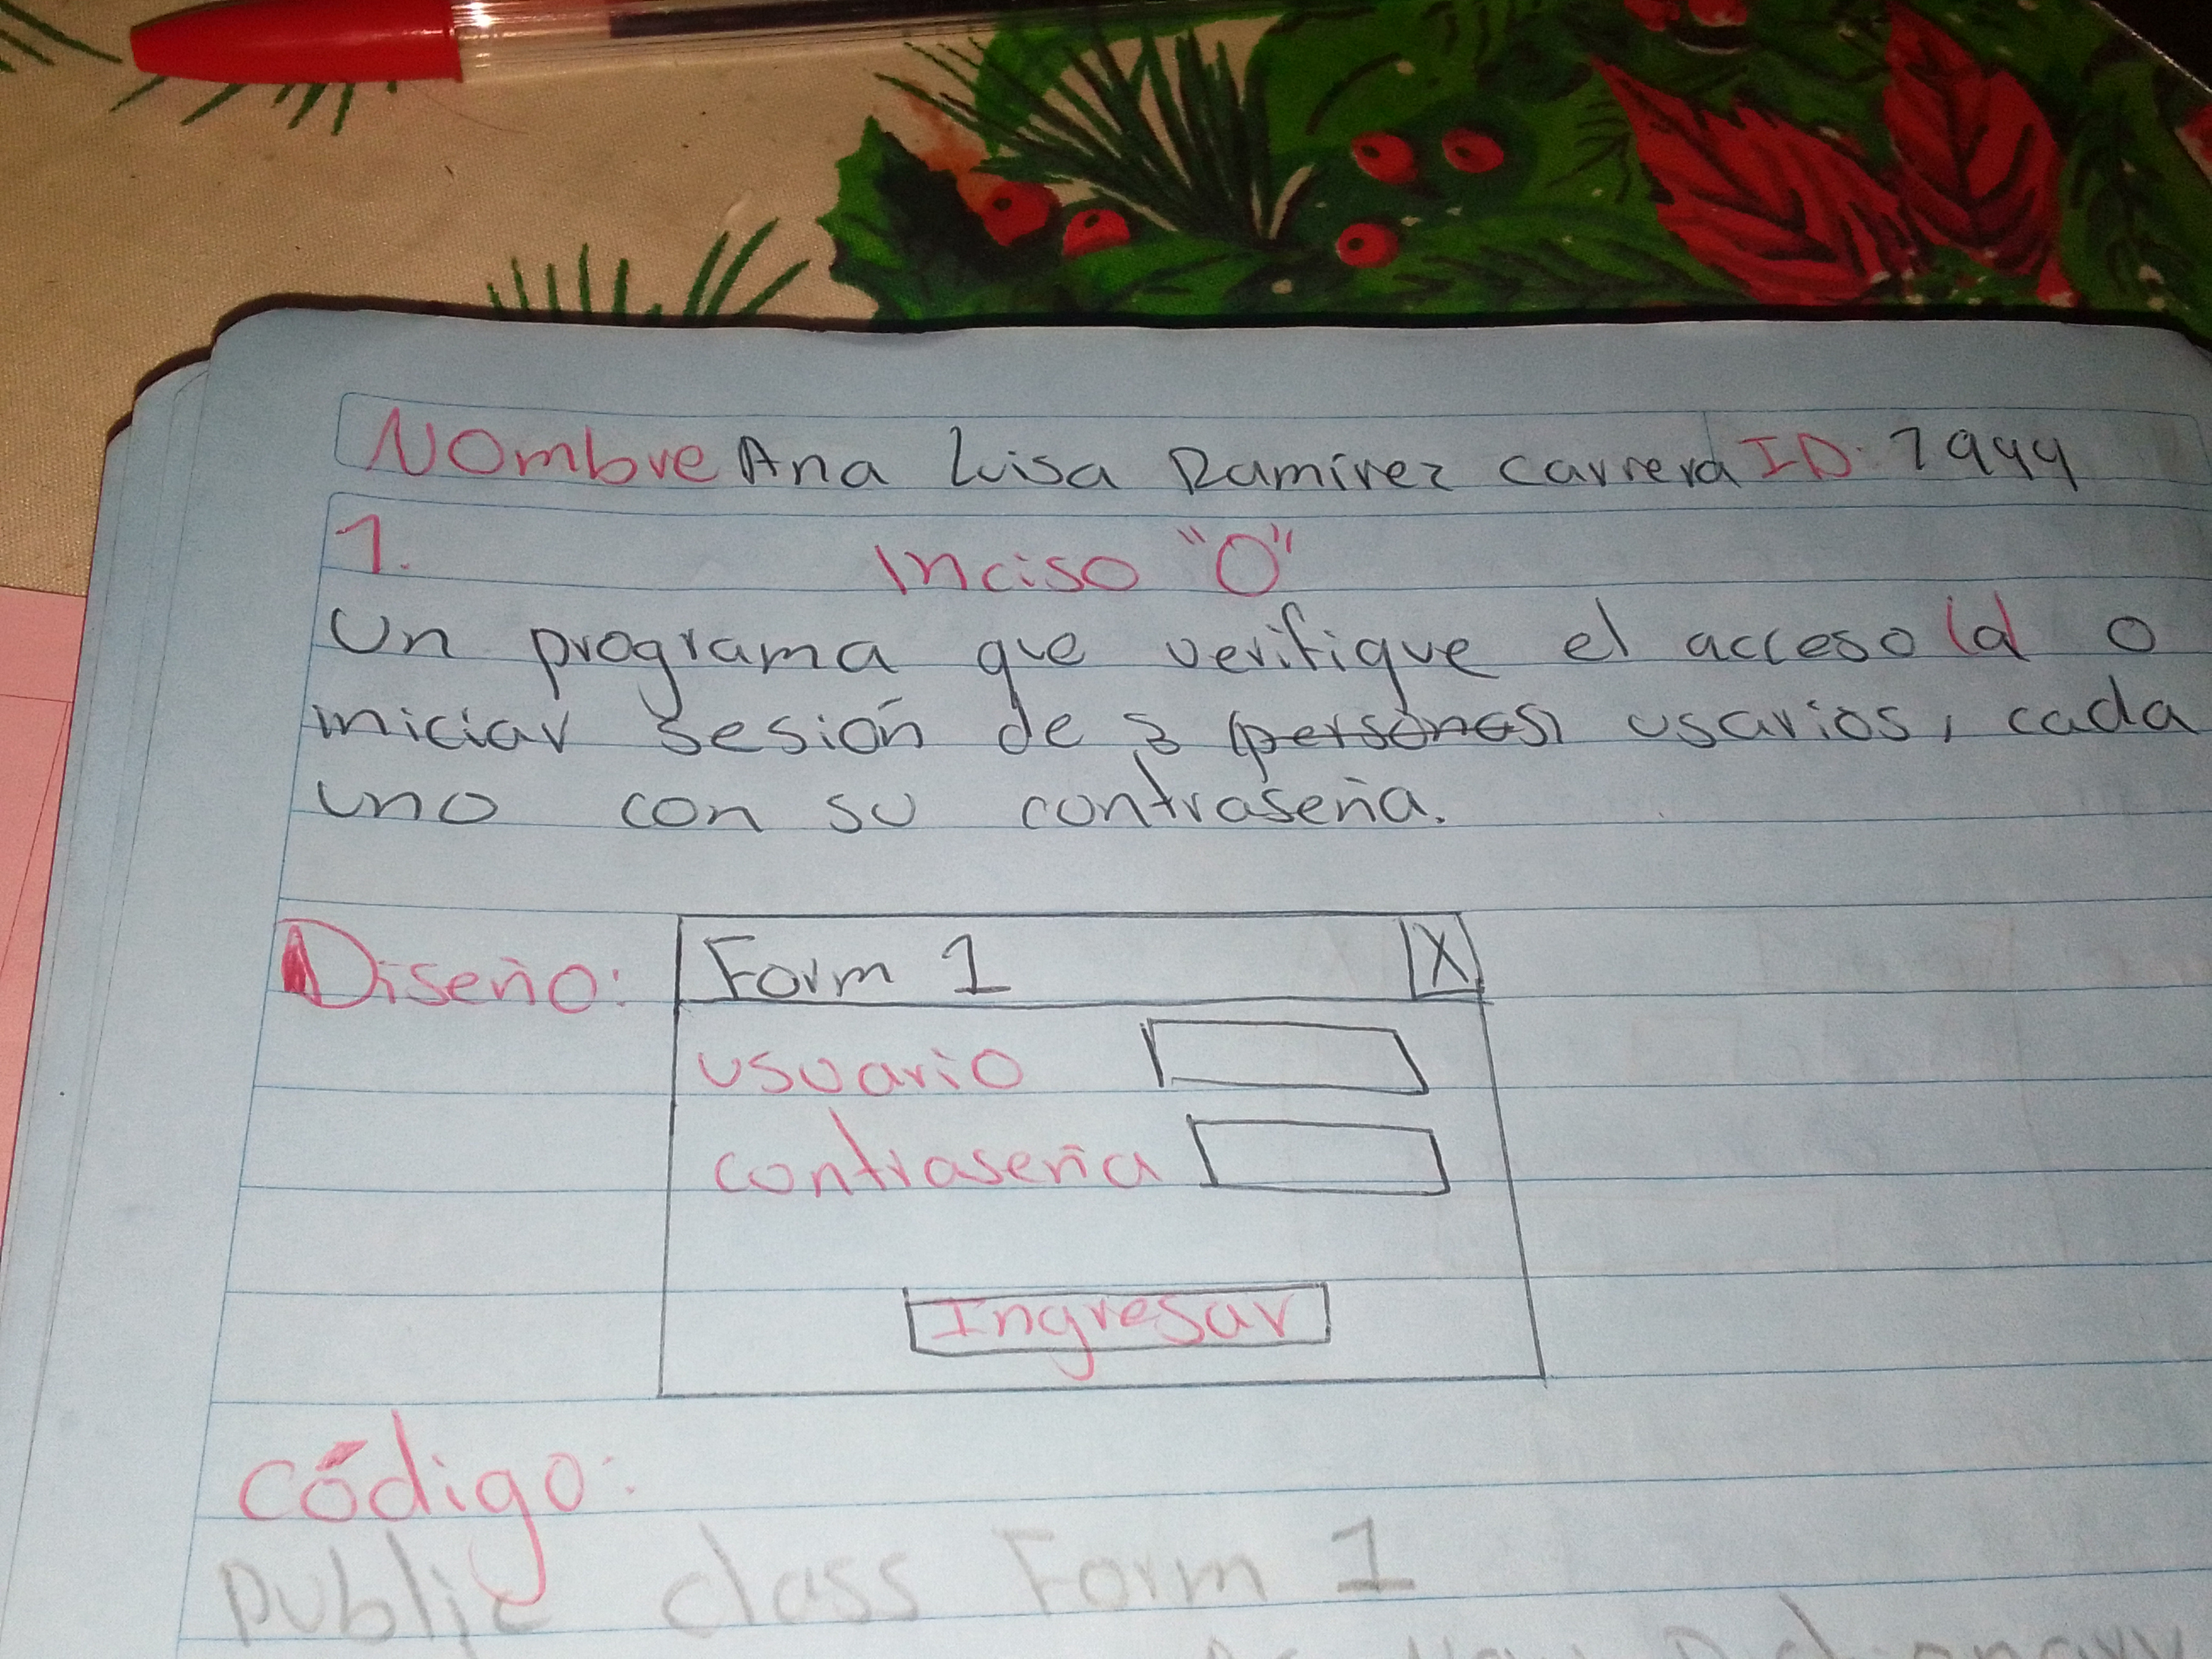 Nombre Ana Luisa Ramírez Carrera ID: 1944
1. Inciso "O"
Un programa que verifique el acceso (al o
iniciar sesión de 3 (personas) usarios, cada
uno con su contraseña.
Diseño: Form 1 X
usuario
contraseña
Ingresar
Código:
Public class Form 1
As New Dictionary